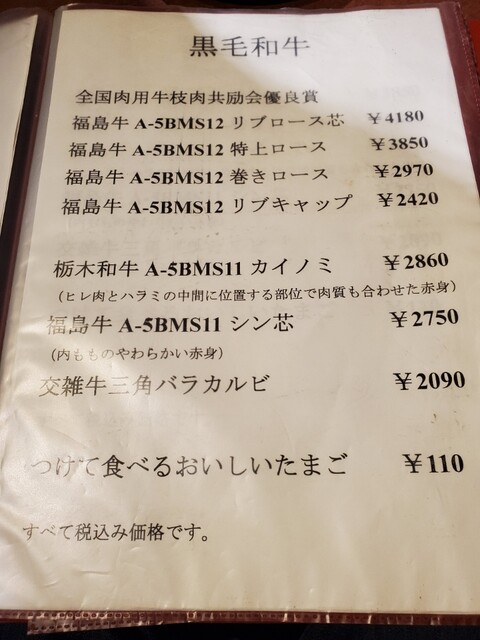 黒毛和牛
全国肉用牛枝肉共励会優良賞
福島牛 A-5BMS12 リブロース芯 ￥4180
福島牛 A-5BMS12 特上ロース ￥3850
福島牛 A-5BMS12 巻きロース ￥2970
福島牛 A-5BMS12 リブキャップ ￥2420
栃木和牛 A-5BMS11 カイノミ ￥2860
（ヒレ肉とハラミの中間に位置する部位で肉質も合わせた赤身）
福島牛 A-5BMS11 シン芯 ￥2750
（内もものやわらかい赤身）
交雑牛三角バラカルビ ￥2090
つけて食べるおいしいたまご ￥110
すべて税込み価格です。